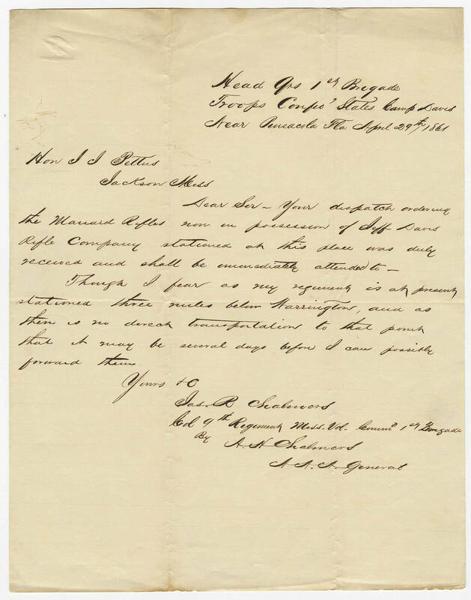 Head Qrs 1st Brigade
Troops Confe' States Camp Davis
Near Pensacola Fla April 29th 1861
Hon J J Pettus
Jackson Miss
Dear Sir - Your dispatch ordering
the Maynard Rifles now in possession of Jeff Davis
Rifle Company stationed at this place was duly
received and shall be immediately attended to -
Though I fear as my regiment is at present
stationed three miles below Warrington, and as
there is no direct transportation to that point
that it may be several days before I can possibly
forward them
Yours &C
Jas. R Chalmers
Col 9th Regiment Miss. Vol. Comm' 1st Brigade
By
A. H. Chalmers
A. A. A. General